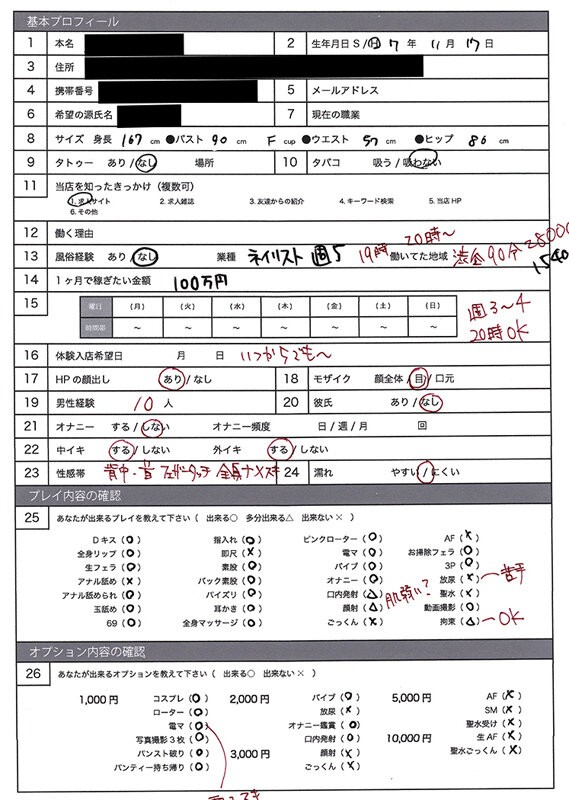 基本プロフィール
1 本名 2 生年月日 S / H 7 年 11 月 17 日
3 住所
4 携帯番号 5 メールアドレス
6 希望の源氏名 7 現在の職業
8 サイズ 身長 167 cm ●バスト 90 cm F cup ●ウエスト 57 cm ●ヒップ 86 cm
9 タトゥー あり / なし 場所 10 タバコ 吸う / 吸わない
11 当店を知ったきっかけ (複数可)
1. 求人サイト 2. 求人雑誌 3. 友達からの紹介 4. キーワード検索 5. 当店 HP
6. その他
12 働く理由
20時〜
13 風俗経験 あり / なし 業種 ネイリスト 週5 19時 働いてた地域 渋谷 90分
14 1ヶ月で稼ぎたい金額 100万円
15 曜日 (月) (火) (水) (木) (金) (土) (日) 週3〜4
時間帯 〜 〜 〜 〜 〜 〜 〜 20時OK
16 体験入店希望日 月 日 いつからでも〜
17 HPの顔出し あり / なし 18 モザイク 顔全体 / 目 / 口元
19 男性経験 10 人 20 彼氏 あり / なし
21 オナニー する / しない オナニー頻度 日 / 週 / 月 回
22 中イキ する / しない 外イキ する / しない
23 性感帯 背中・首 フェザータッチ 24 濡れ やすい / にくい
プレイ内容の確認
25 あなたが出来るプレイを教えて下さい ( 出来る○ 多分出来る△ 出来ない× )
Dキス (○) 指入れ (○) ピンクローター (○) AF (×)
全身リップ (○) 即尺 (×) 電マ (○) お掃除フェラ (○)
生フェラ (○) 素股 (○) バイブ (○) 3P (○)
アナル舐め (×) バック素股 (○) オナニー (○) 放尿 (×) 〜苦手
アナル舐められ (○) パイズリ (○) 口内発射 (△) 肌弱い? 聖水 (×)
玉舐め (○) 耳かき (○) 顔射 (△) 動画撮影 (○)
69 (○) 全身マッサージ (○) ごっくん (×) 拘束 (△) 〜OK
オプション内容の確認
26 あなたが出来るオプションを教えて下さい ( 出来る○ 出来ない× )
1,000円 コスプレ (○) 2,000円 バイブ (○) 5,000円 AF (×)
ローター (○) 放尿 (×) SM (×)
電マ (○) オナニー鑑賞 (○) 聖水受け (×)
写真撮影3枚 (○) 口内発射 (○) 10,000円 生AF (×)
パンスト破り (○) 3,000円 顔射 (×) 聖水ごっくん (×)
パンティー持ち帰り (○) ごっくん (×)